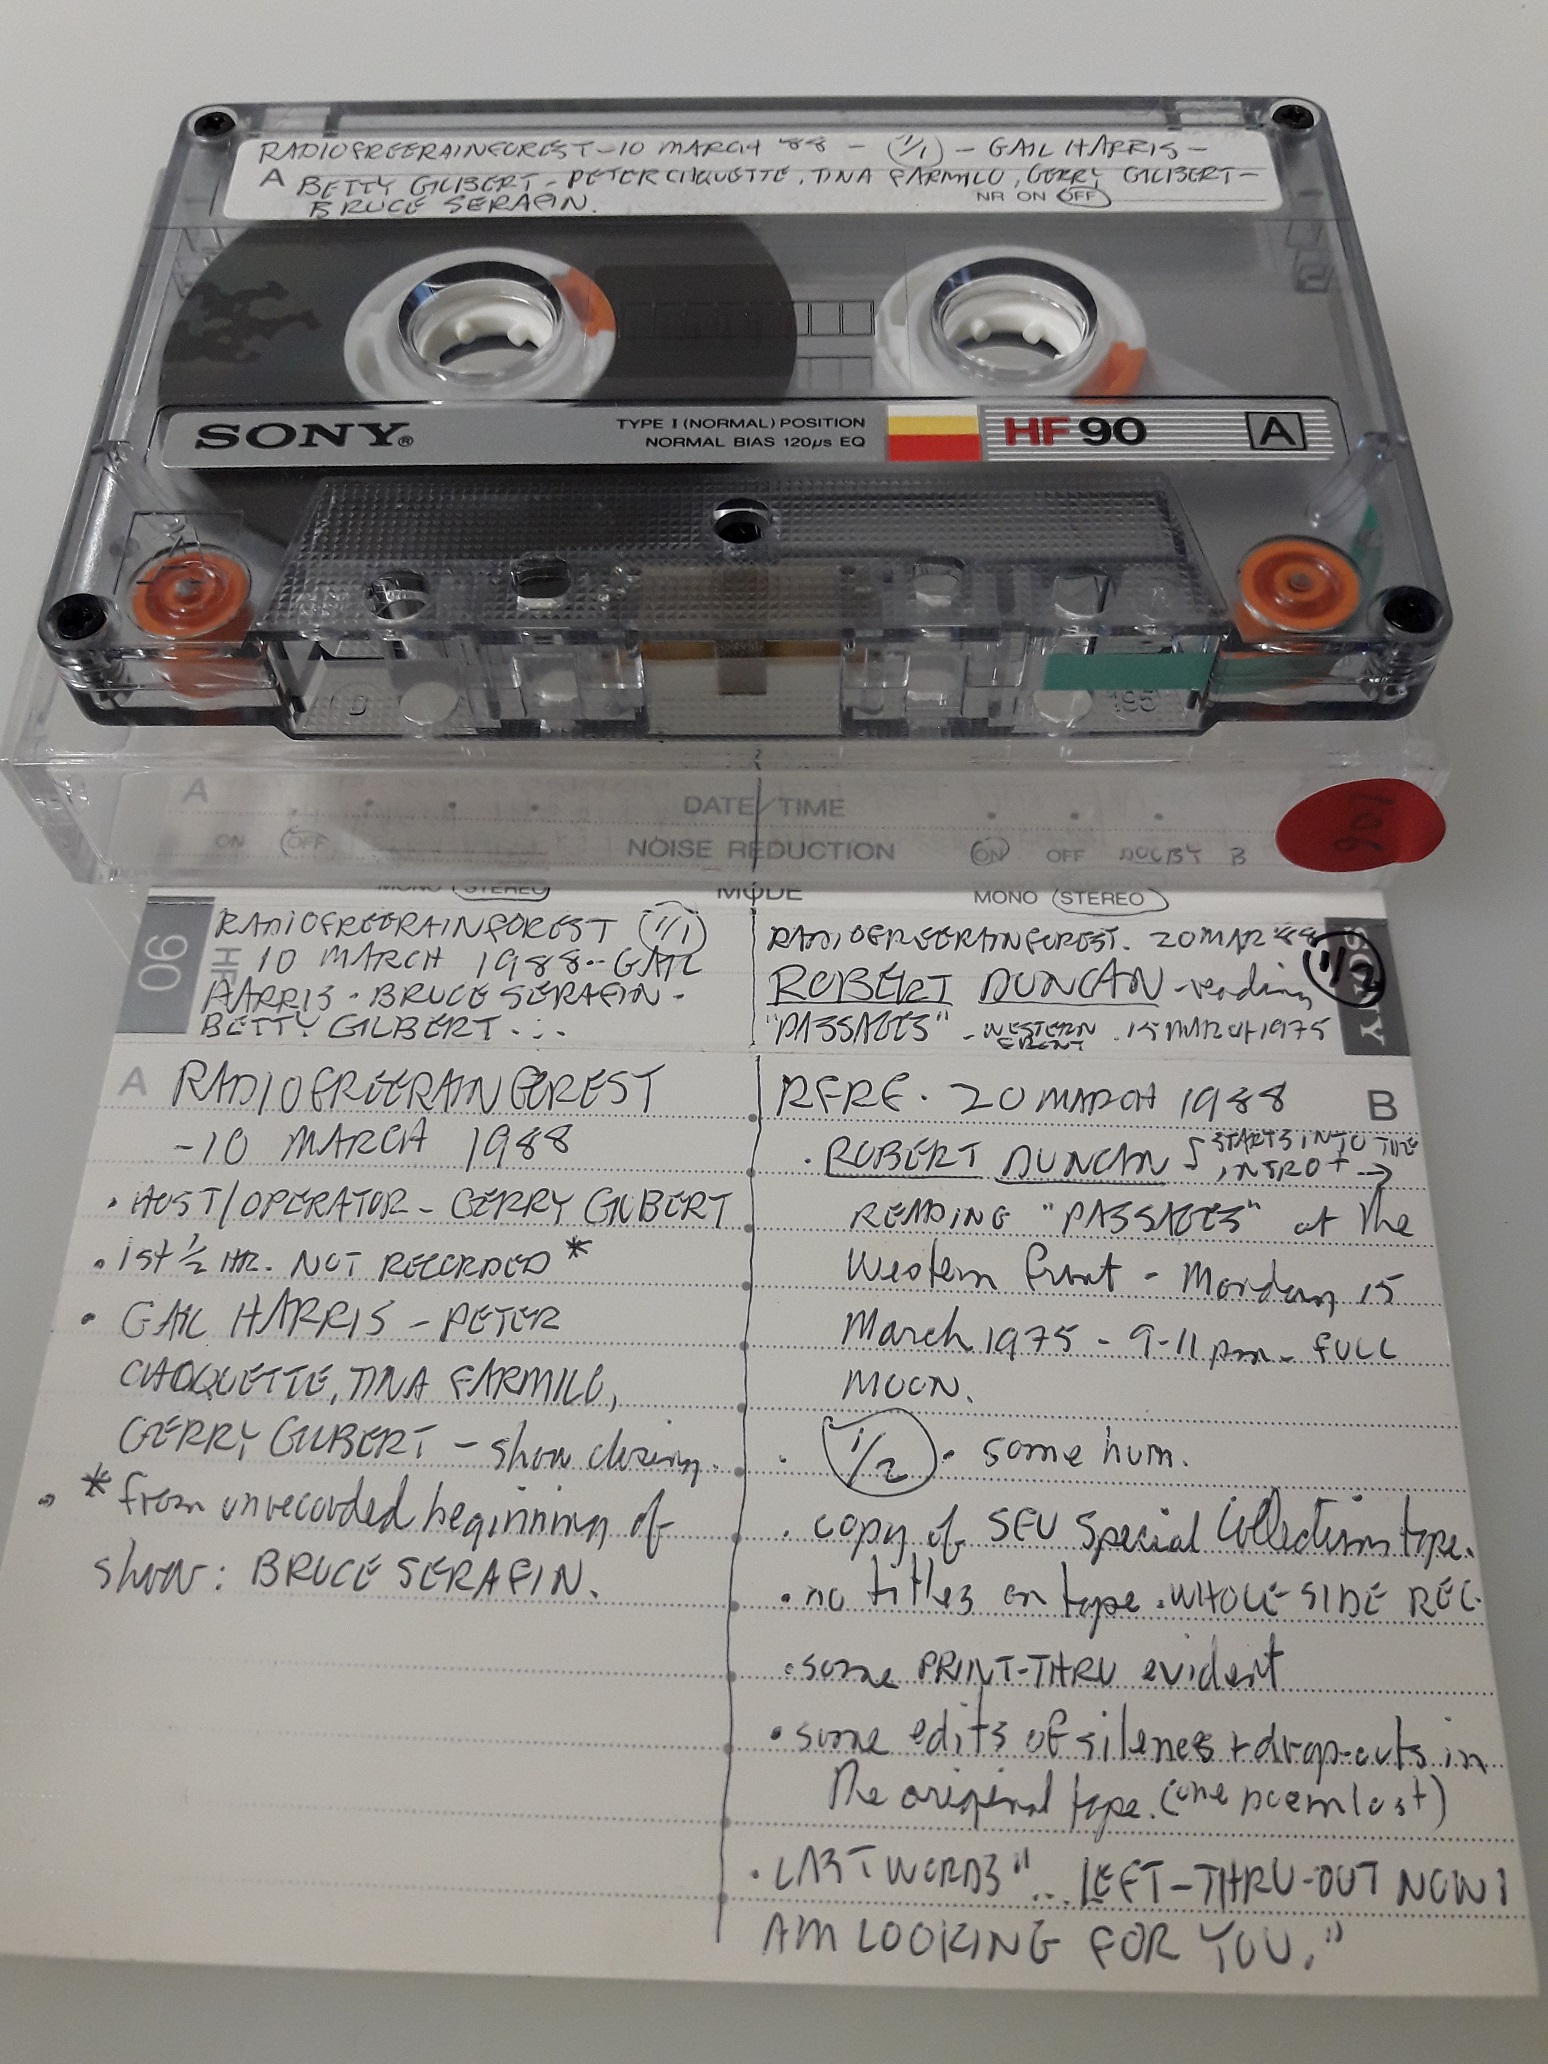 RADIOFREERAINFOREST-10 MARCH '88 - (1/1) - GAIL HARRIS-
A BETTY GILBERT - PETER CHQUETTE, TINA FARMILO, GERRY GILBERT-
BRUCE SERAFIN.
NR ON OFF
SONY®
TYPE I (NORMAL) POSITION
NORMAL BIAS 120µs EQ
HF 90
A
A
DATE/TIME
ON OFF
NOISE REDUCTION
ON OFF DOLBY B
MONO STEREO
MODE
MONO STEREO
90
HF
RADIOFREERAINFOREST 1/1
10 MARCH 1988-- GAIL
HARRIS - BRUCE SERAFIN -
BETTY GILBERT . . .
SONY
RADIOFREERAINFOREST. 20 MAR '88
1/2
ROBERT DUNCAN - reading
"PASSAGES" - WESTERN FRONT . 15 MARCH 1975
A RADIOFREERAINFOREST
-10 MARCH 1988
• HOST/OPERATOR - GERRY GILBERT
• 1st ½ HR. NOT RECORDED *
• GAIL HARRIS - PETER
CHOQUETTE, TINA FARMILO,
GERRY GILBERT - show closing.
• * from unrecorded beginning of
show: BRUCE SERAFIN.
B
RFRF . 20 MARCH 1988
. ROBERT DUNCAN STARTS INTO THE
INTRO + →
READING "PASSAGES" at The
Western Front - Monday 15
March 1975 - 9-11 pm - FULL
MOON.
. 1/2 . some hum.
. copy of SFU Special Collections tape.
• no titles on tape . WHOLE SIDE REC.
• some PRINT-THRU evident
• some edits of silences + drop-outs in
The original tape. (one poem lost)
. LAST WORDS "... LEFT-THRU-OUT NOW I
AM LOOKING FOR YOU."